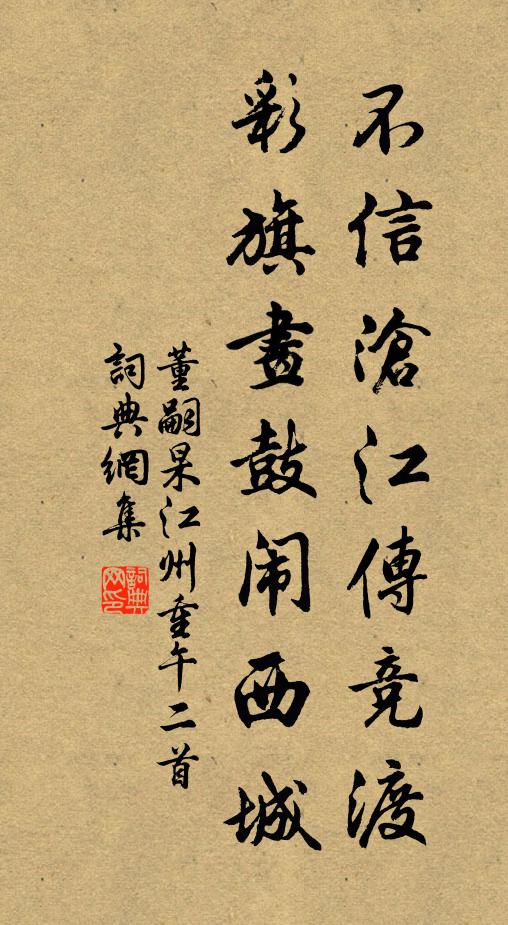 不信滄江傳竞渡
彩旗畫鼓闹西城
董嗣杲江州重午二首
詞典網集
詞典网印